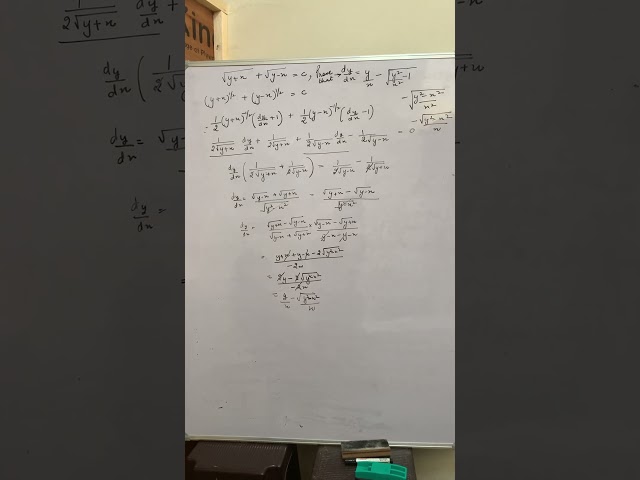 kin
√y+x + √y-x = c, Prove that → dy/dx = y/x - √(y²/x² - 1)
(y+x)^1/2 + (y-x)^1/2 = c
-√(y²-x²/x²)
: 1/2 (y+x)^-1/2 (dy/dx + 1) + 1/2 (y-x)^-1/2 (dy/dx - 1)
-√(y²-x²)/x
1/2√y+x dy/dx + 1/2√y+x + 1/2√y-x dy/dx - 1/2√y-x = 0
dy/dx (1/2√y+x + 1/2√y-x) = 1/2√y-x - 1/2√y+x
dy/dx = √y-x + √y+x / √y²-x² = √y+x - √y-x / √y²-x²
dy/dx = √y+x - √y-x / √y-x + √y+x × √y-x - √y+x / y-x-y-x
= y+x+y-x-2√y²-x² / -2x
= 2y-2√y²-x² / -2x
= y/x - √y²-x² / x